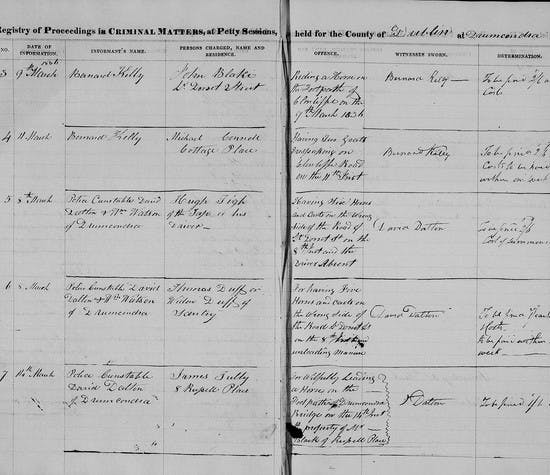 Registry of Proceedings in CRIMINAL MATTERS, at Petty Sessions, held for the County of Dublin at Drumcondra
NO.
DATE OF INFORMATION.
INFORMANT'S NAME.
PERSONS CHARGED, NAME AND RESIDENCE.
OFFENCE.
WITNESSES SWORN.
DETERMINATION.
3
9th March
Bernard Kelly
John Blake
Dorset Street
Riding a Horse on
the Footpath of
on the
9th March
Bernard Kelly
To be fined
Costs
4
11 March
Bernard Kelly
Michael Connell
Cottage Place
Having Two Goats
trespassing on
Road
on the 11th Inst
Bernard Kelly
To be fined
Costs to be paid
within one week
5
8th March
Police Constable David
Dalton & Wm Watson
of Drumcondra
Hugh Tigh
of the
driver
Having Five Horses
and Carts on the Wrong
side of the Road of
Dorset St on the
8th Inst and the
driver Absent
David Dalton
To be fined
Cost of Summons
6
8 March
Police Constable David
Dalton & Wm Watson
of Drumcondra
Thomas Duffy or
Widow Duffy
Santry
For having Five
Horses and carts on
the Wrong side of
the Road Dorset St
on the 8th Inst
unloading Manure
David Dalton
To be fined
Costs
to be paid within
week
7
14th March
Police Constable
David Dalton
of Drumcondra
James Tully
8 Russell Place
For Wilfully Leading
a Horse on the
Footpath of Drumcondra
Bridge on the 14th Inst
the property of Mr
of Russell Place
D Dalton
To be fined